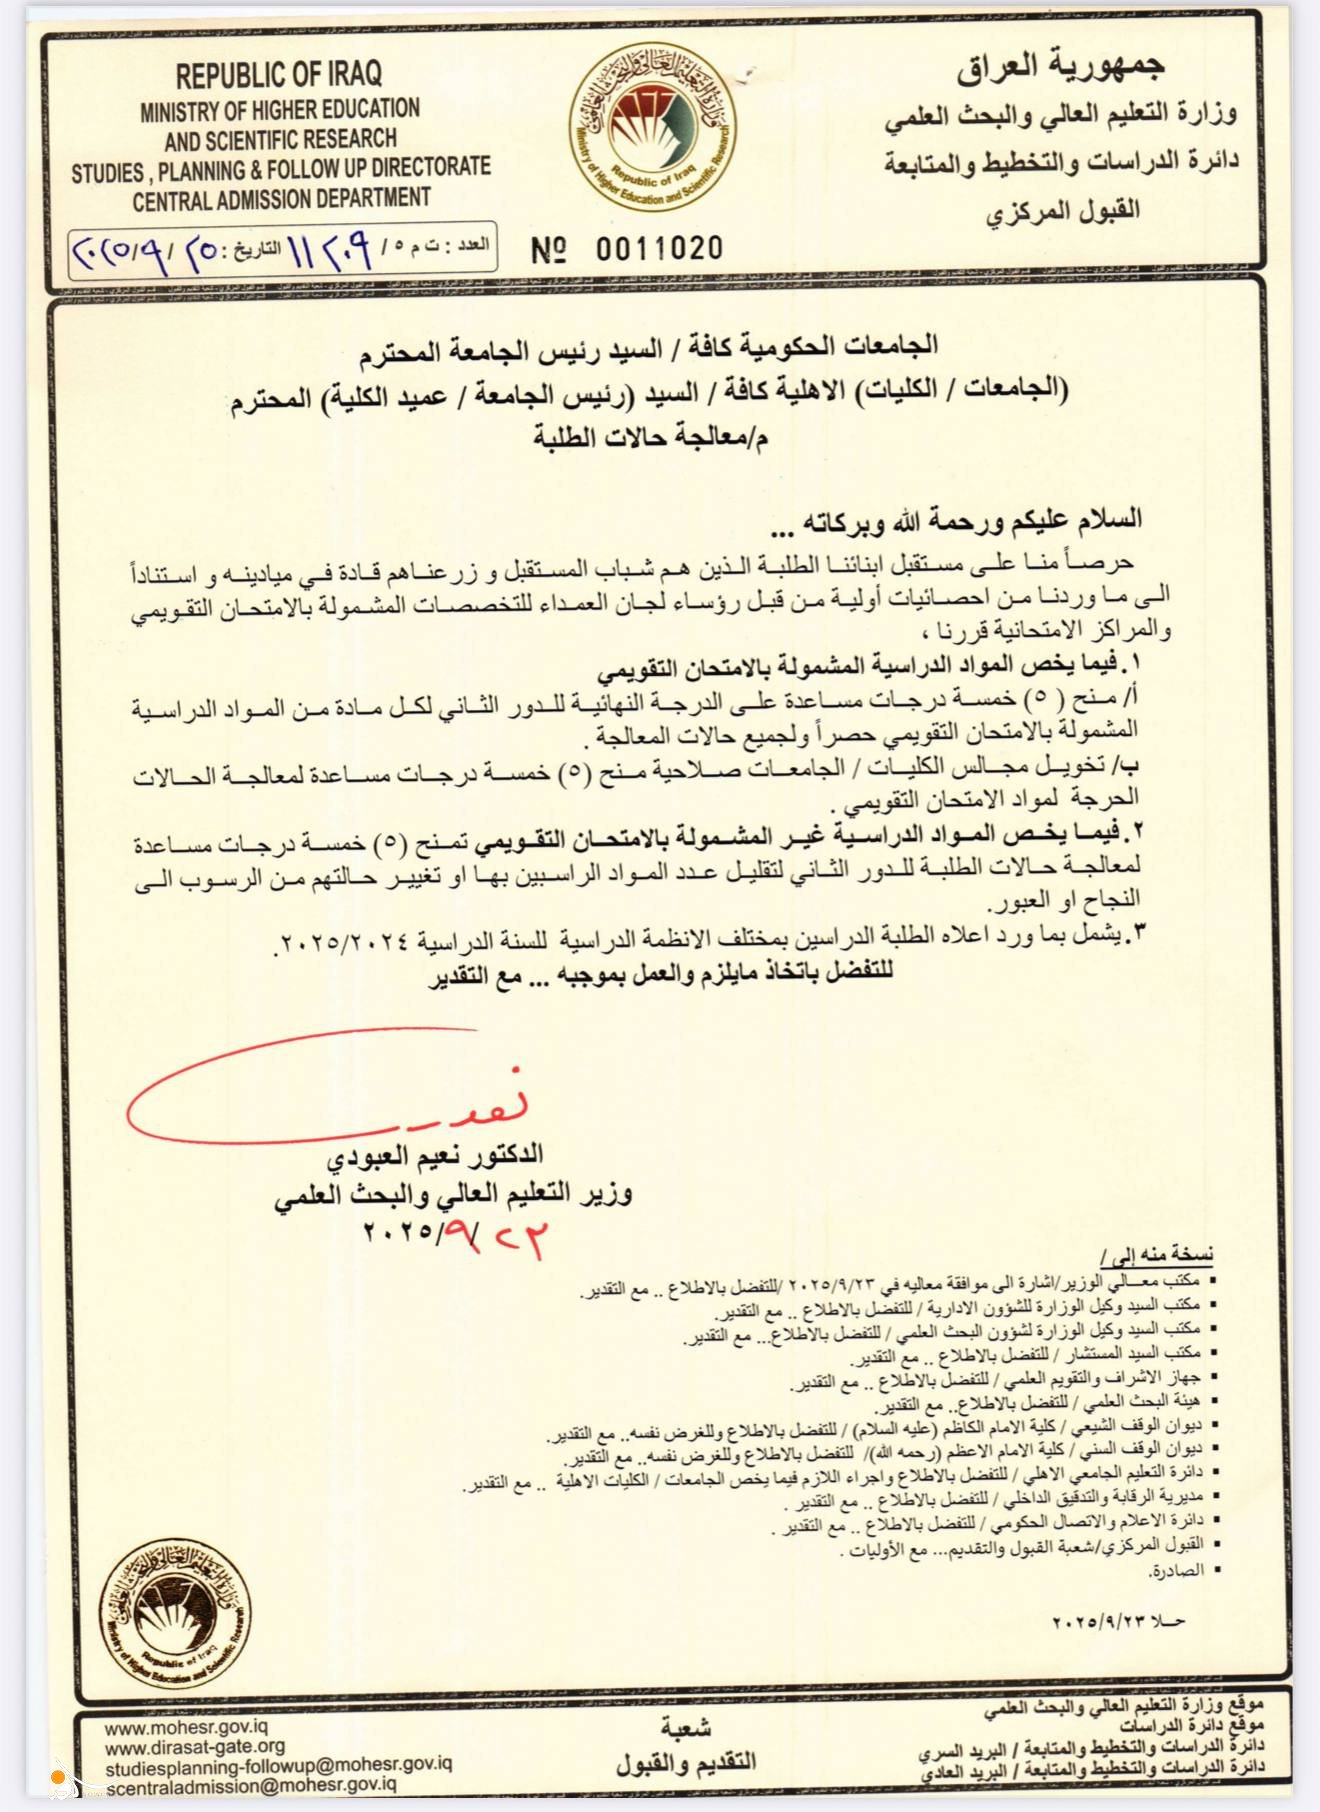 REPUBLIC OF IRAQ
MINISTRY OF HIGHER EDUCATION
AND SCIENTIFIC RESEARCH
STUDIES , PLANNING & FOLLOW UP DIRECTORATE
CENTRAL ADMISSION DEPARTMENT
وزارة التعليم العالي والبحث العلمي
Republic of Iraq
Ministry of Higher Education and Scientific Research
جمهورية العراق
وزارة التعليم العالي والبحث العلمي
دائرة الدراسات والتخطيط والمتابعة
القبول المركزي
العدد : ت م ٥ / ١١٢٠٩ التاريخ : ٢٥ / ٩ / ٢٠٢٥
Nº 0011020
الجامعات الحكومية كافة / السيد رئيس الجامعة المحترم
(الجامعات / الكليات) الاهلية كافة / السيد (رئيس الجامعة / عميد الكلية) المحترم
م/معالجة حالات الطلبة
السلام عليكم ورحمة الله وبركاته ...
حرصاً منا على مستقبل ابنائنا الطلبة الذين هم شباب المستقبل و زرعناهم قادة في ميادينه و استناداً
الى ما وردنا من احصائيات أولية من قبل رؤساء لجان العمداء للتخصصات المشمولة بالامتحان التقويمي
والمراكز الامتحانية قررنا ،
١. فيما يخص المواد الدراسية المشمولة بالامتحان التقويمي
أ/ منح ( ٥) خمسة درجات مساعدة على الدرجة النهائية للدور الثاني لكل مادة من المواد الدراسية
المشمولة بالامتحان التقويمي حصراً ولجميع حالات المعالجة .
ب/ تخويل مجالس الكليات / الجامعات صلاحية منح (٥) خمسة درجات مساعدة لمعالجة الحالات
الحرجة لمواد الامتحان التقويمي .
٢. فيما يخص المواد الدراسية غير المشمولة بالامتحان التقويمي تمنح (٥) خمسة درجات مساعدة
لمعالجة حالات الطلبة للدور الثاني لتقليل عدد المواد الراسبين بها او تغيير حالتهم من الرسوب الى
النجاح او العبور.
٣. يشمل بما ورد اعلاه الطلبة الدراسين بمختلف الانظمة الدراسية للسنة الدراسية ٢٠٢٥/٢٠٢٤.
للتفضل باتخاذ مايلزم والعمل بموجبه ... مع التقدير
الدكتور نعيم العبودي
وزير التعليم العالي والبحث العلمي
٢٣ /٩/ ٢٠٢٥
نسخة منه إلى /
▪ مكتب معالي الوزير/اشارة الى موافقة معاليه في ٢٠٢٥/٩/٢٣ /للتفضل بالاطلاع .. مع التقدير.
▪ مكتب السيد وكيل الوزارة للشؤون الادارية / للتفضل بالاطلاع .. مع التقدير.
▪ مكتب السيد وكيل الوزارة لشؤون البحث العلمي / للتفضل بالاطلاع... مع التقدير.
▪ مكتب السيد المستشار / للتفضل بالاطلاع .. مع التقدير.
▪ جهاز الاشراف والتقويم العلمي / للتفضل بالاطلاع .. مع التقدير.
▪ هيئة البحث العلمي / للتفضل بالاطلاع.. مع التقدير.
▪ ديوان الوقف الشيعي / كلية الامام الكاظم (عليه السلام) / للتفضل بالاطلاع وللغرض نفسه.. مع التقدير.
▪ ديوان الوقف السني / كلية الامام الاعظم (رحمه الله)/ للتفضل بالاطلاع وللغرض نفسه.. مع التقدير.
▪ دائرة التعليم الجامعي الاهلي / للتفضل بالاطلاع واجراء اللازم فيما يخص الجامعات / الكليات الاهلية .. مع التقدير.
▪ مديرية الرقابة والتدقيق الداخلي / للتفضل بالاطلاع .. مع التقدير .
▪ دائرة الاعلام والاتصال الحكومي / للتفضل بالاطلاع .. مع التقدير .
▪ القبول المركزي/شعبة القبول والتقديم... مع الأوليات .
▪ الصادرة.
حلا ٢٠٢٥/٩/٢٣
وزارة التعليم العالي والبحث العلمي
Republic of Iraq
Ministry of Higher Education and Scientific Research
موقع وزارة التعليم العالي والبحث العلمي
موقع دائرة الدراسات
دائرة الدراسات والتخطيط والمتابعة / البريد السري
دائرة الدراسات والتخطيط والمتابعة / البريد العادي
شعبة
التقديم والقبول
www.mohesr.gov.iq
www.dirasat-gate.org
studiesplanning-followup@mohesr.gov.iq
scentraladmission@mohesr.gov.iq